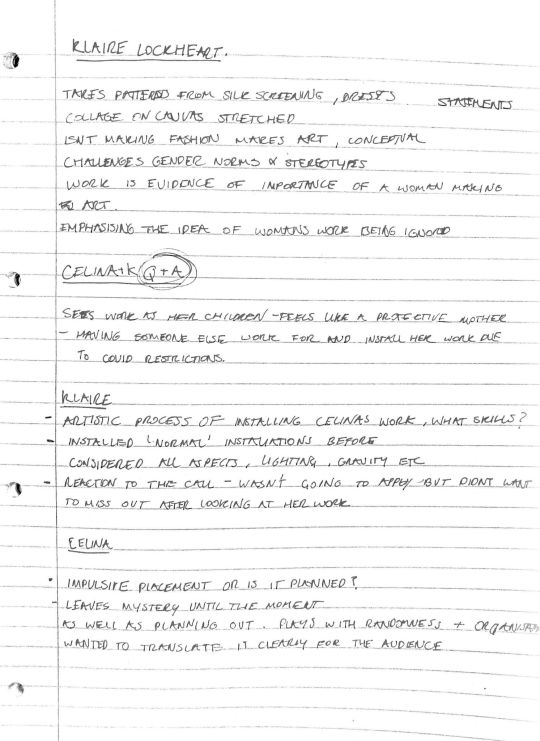 KLAIRE LOCKHEART.
TAKES PATTERNS FROM SILK SCREENING, DRESSES STATEMENTS
COLLAGE ON CANVAS STRETCHED
ISNT MAKING FASHION MAKES ART, CONCEPTUAL
CHALLENGES GENDER NORMS & STEREOTYPES
WORK IS EVIDENCE OF IMPORTANCE OF A WOMAN MAKING
ART.
EMPHASISING THE IDEA OF WOMANS WORK BEING IGNORED
CELINA+K Q+A
SEES WORK AS HER CHILDREN - FEELS LIKE A PROTECTIVE MOTHER
- HAVING SOMEONE ELSE WORK FOR AND INSTALL HER WORK DUE
TO COVID RESTRICTIONS.
KLAIRE
- ARTISTIC PROCESS OF INSTALLING CELINAS WORK, WHAT SKILLS?
- INSTALLED 'NORMAL' INSTALLATIONS BEFORE
CONSIDERED ALL ASPECTS, LIGHTING, GRAVITY ETC
- REACTION TO THE CALL - WASN'T GOING TO APPLY BUT DIDNT WANT
TO MISS OUT AFTER LOOKING AT HER WORK.
CELINA
• IMPULSIVE PLACEMENT OR IS IT PLANNED?
- LEAVES MYSTERY UNTIL THE MOMENT
AS WELL AS PLANNING OUT. PLAYS WITH RANDOMNESS + ORGANISED
WANTED TO TRANSLATE IT CLEARLY FOR THE AUDIENCE